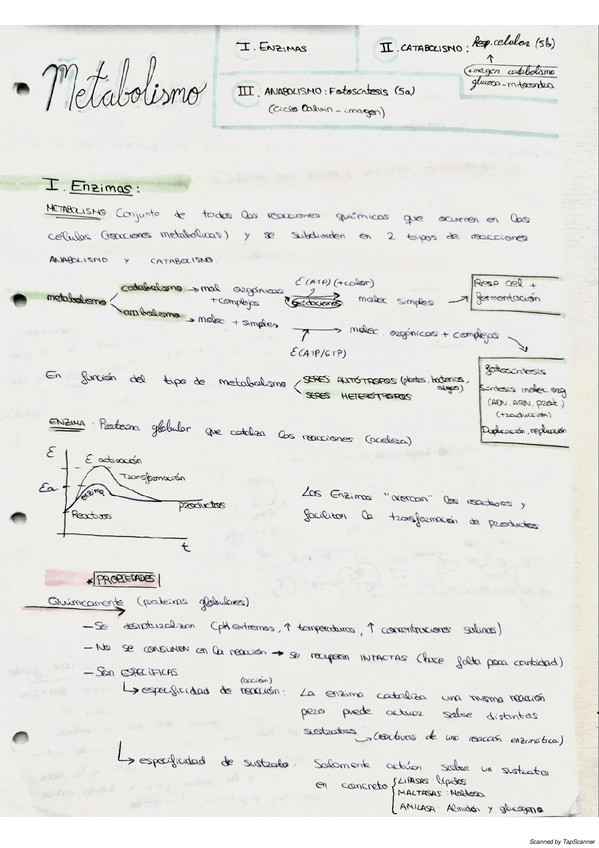 Metabolismo
I. ENZIMAS
II. CATABOLISMO: Resp. celular (5b)
imagen catabolismo
glucosa - mitocondria
III. ANABOLISMO: Fotosíntesis (5a)
(Ciclo Calvin - imagen)
I. Enzimas:
METABOLISMO Conjunto de todas las reacciones químicas que ocurren en las
células (reacciones metabólicas) y se subdividen en 2 tipos de reacciones
ANABOLISMO Y CATABOLISMO.
metabolismo
catabolismo → mol orgánicas
+ complejas
E (ATP) (+ calor)
oxidaciones
molec simples →
Resp cel +
fermentación
anabolismo → molec + simples
E (ATP/GTP)
molec orgánicas + complejas
fotosíntesis
Síntesis molec org
(ADN, ARN, prot.)
(traducción)
Duplicación, replicación
En función del tipo de metabolismo
SERES AUTÓTROFOS (plantas, bacterias,
algas)
SERES HETERÓTROFOS
ENZIMA: Proteína globular que cataliza las reacciones (acelera)
E
E activación
Transformación
Ea
enzima
Reactivos
productos
t
Las Enzimas "acercan" los reactivos y
facilitan la transformación de productos
* PROPIEDADES
Químicamente (proteínas globulares)
- Se desnaturalizan (pH extremos, ↑ temperaturas, ↑ concentraciones salinas)
- No se CONSUMEN en la reacción → se recuperan INTACTAS (hace falta poca cantidad)
- Son ESPECÍFICAS
(acción)
↳ especificidad de reacción: La enzima cataliza una misma reacción
pero puede actuar sobre distintos
sustratos → (reactivos de una reacción enzimática)
↳ especificidad de sustrato: Solamente actúan sobre un sustrato
en concreto
LIPASAS: lípidos
MALTASAS: Maltosa
AMILASA: Almidón y glucógeno
Scanned by TapScanner